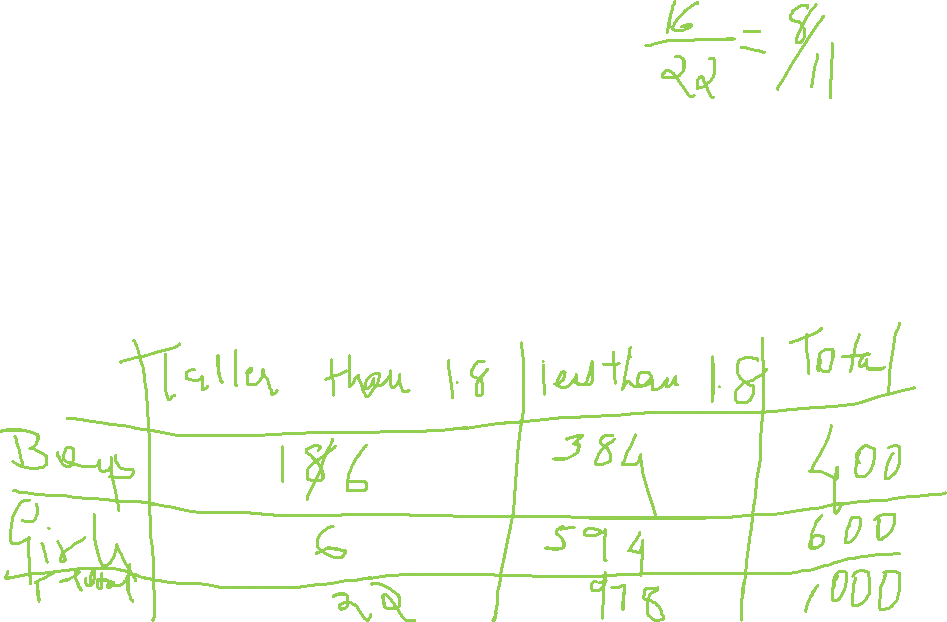 16
22 = 8/11
Taller than 1.8 less than 1.8 Total
Boys 16 384 400
Girls 6 594 600
Total 22 978 1000